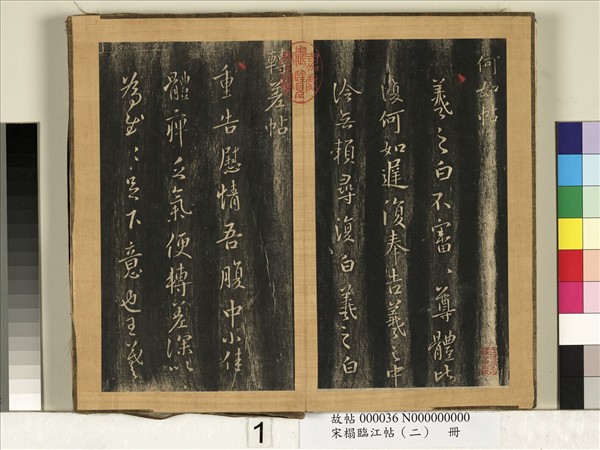 何如帖
羲之白不審、尊體比
復何如遲復奉告羲之中
冷無賴尋復白羲之白
轉差帖
重告慰情吾腹中小佳
體痺乏氣便轉差深以
為慰、足下意也王羲
故帖 000036 N000000000
宋榻臨江帖（二） 冊
1